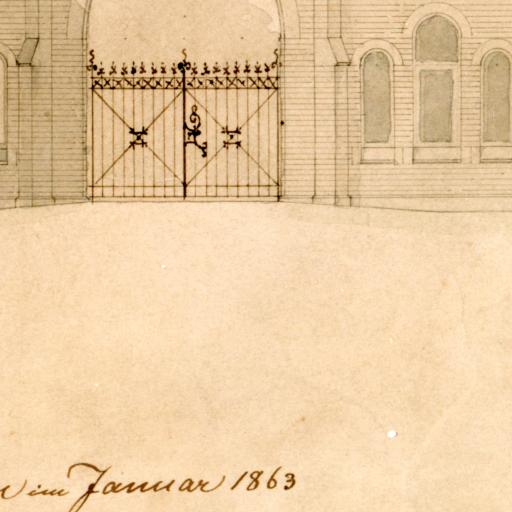 im Januar 1863